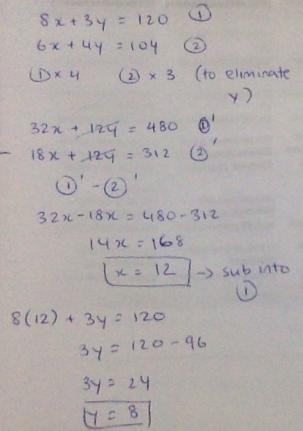 8x + 3y = 120 ①
6x + 4y = 104 ②
① × 4 ② × 3 (to eliminate
y)
32x + 12y = 480 ①'
- 18x + 12y = 312 ②'
①' - ②'
32x - 18x = 480 - 312
14x = 168
x = 12 → sub into
①
8(12) + 3y = 120
3y = 120 - 96
3y = 24
y = 8